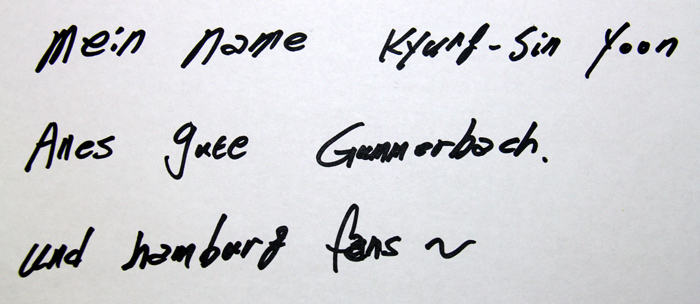 Mein name Kyung-Sin Yoon
Alles gute Gummerbach.
und hamburg fans ~